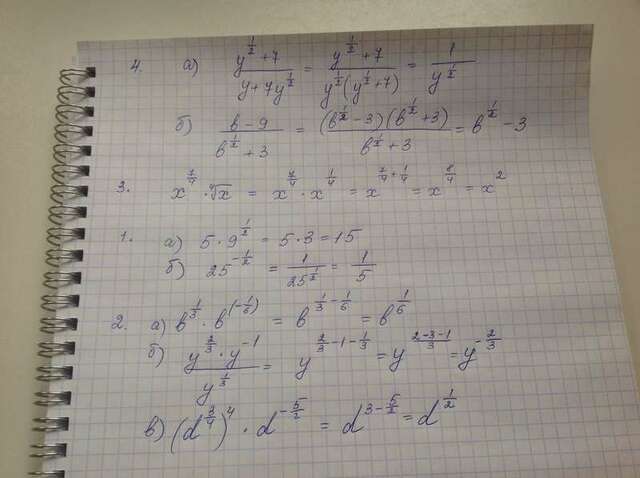 4. а) (y^(1/2)+7)/(y+7y^(1/2)) = (y^(1/2)+7)/(y^(1/2)(y^(1/2)+7)) = 1/y^(1/2)
б) (в-9)/(в^(1/2)+3) = ((в^(1/2)-3)(в^(1/2)+3))/(в^(1/2)+3) = в^(1/2)-3
3. x^(7/4) · ⁴√x = x^(7/4) · x^(1/4) = x^(7/4+1/4) = x^(8/4) = x^2
1. а) 5·9^(1/2) = 5·3=15
б) 25^(-1/2) = 1/25^(1/2) = 1/5
2. а) в^(1/3) · в^(-1/6) = в^(1/3-1/6) = в^(1/6)
б) (y^(2/3) · y^(-1))/y^(1/3) = y^(2/3-1-1/3) = y^((2-3-1)/3) = y^(-2/3)
в) (d^(3/4))^4 · d^(-5/2) = d^(3-5/2) = d^(1/2)